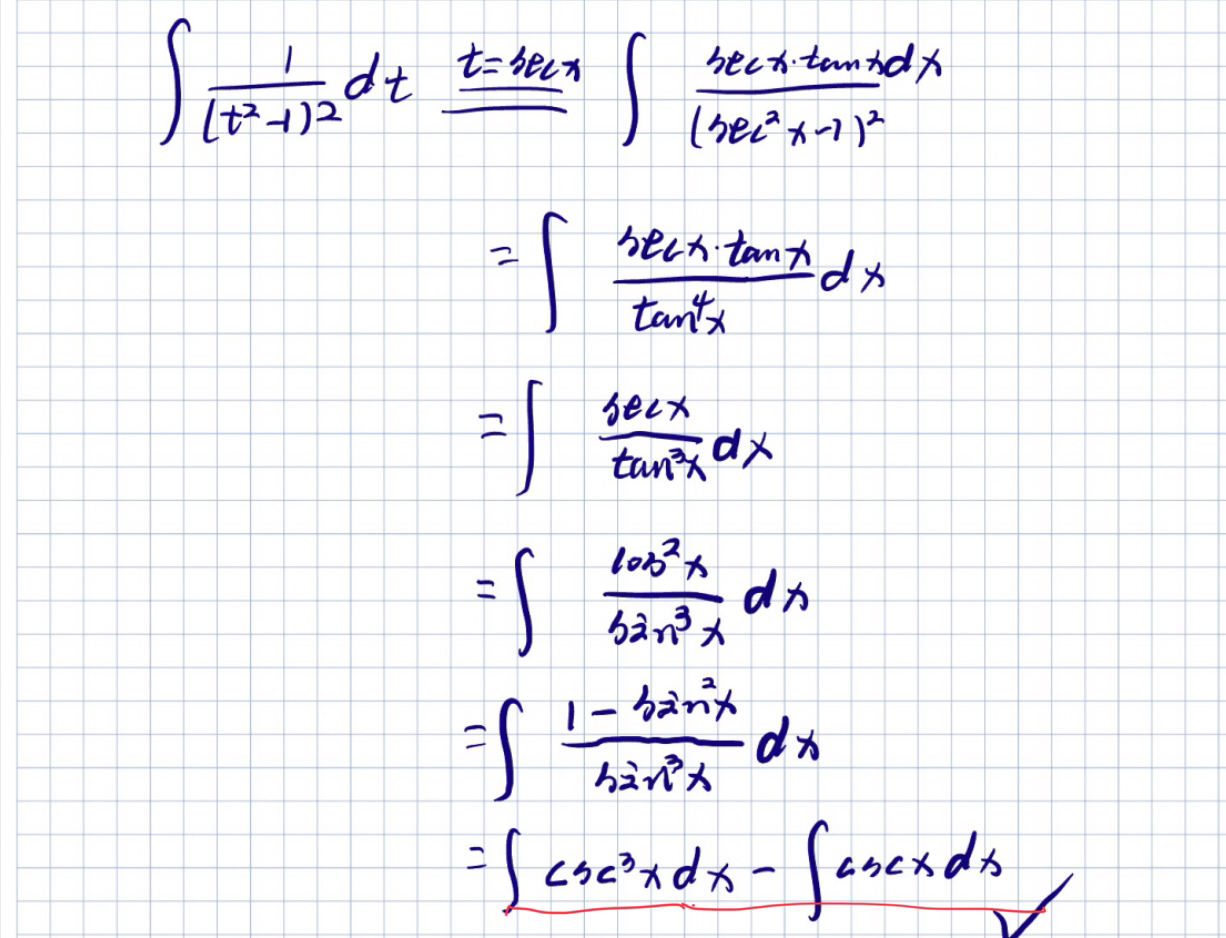 ∫ 1/(t²-1)² dt t=secx ∫ secx·tanxdx/(sec²x-1)²
= ∫ secx·tanx/tan⁴x dx
= ∫ secx/tan³x dx
= ∫ cos²x/sin³x dx
= ∫ 1-sin²x/sin³x dx
= ∫ csc³xdx - ∫ cscxdx